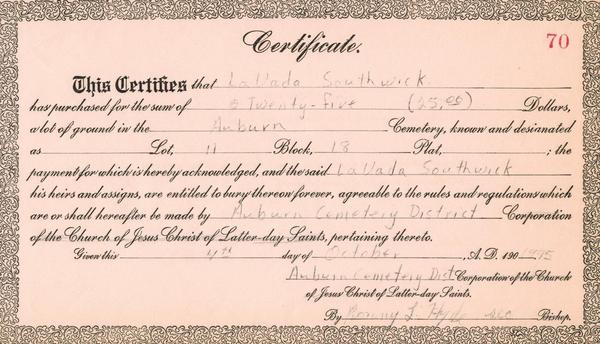 Certificate.
70
This Certifies that LaVada Southwick
has purchased for the sum of Twenty-five (25.00) Dollars,
a lot of ground in the Auburn Cemetery, known and designated
as Lot, 11 Block, 18 Plat, ; the
payment for which is hereby acknowledged, and the said LaVada Southwick
his heirs and assigns, are entitled to bury thereon forever, agreeable to the rules and regulations which
are or shall hereafter be made by Auburn Cemetery District Corporation
of the Church of Jesus Christ of Latter-day Saints, pertaining thereto.
Given this 4th day of October , A. D. 190 1975
Auburn Cemetery Dist Corporation of the Church
of Jesus Christ of Latter-day Saints.
By L. Hyde sec Bishop.